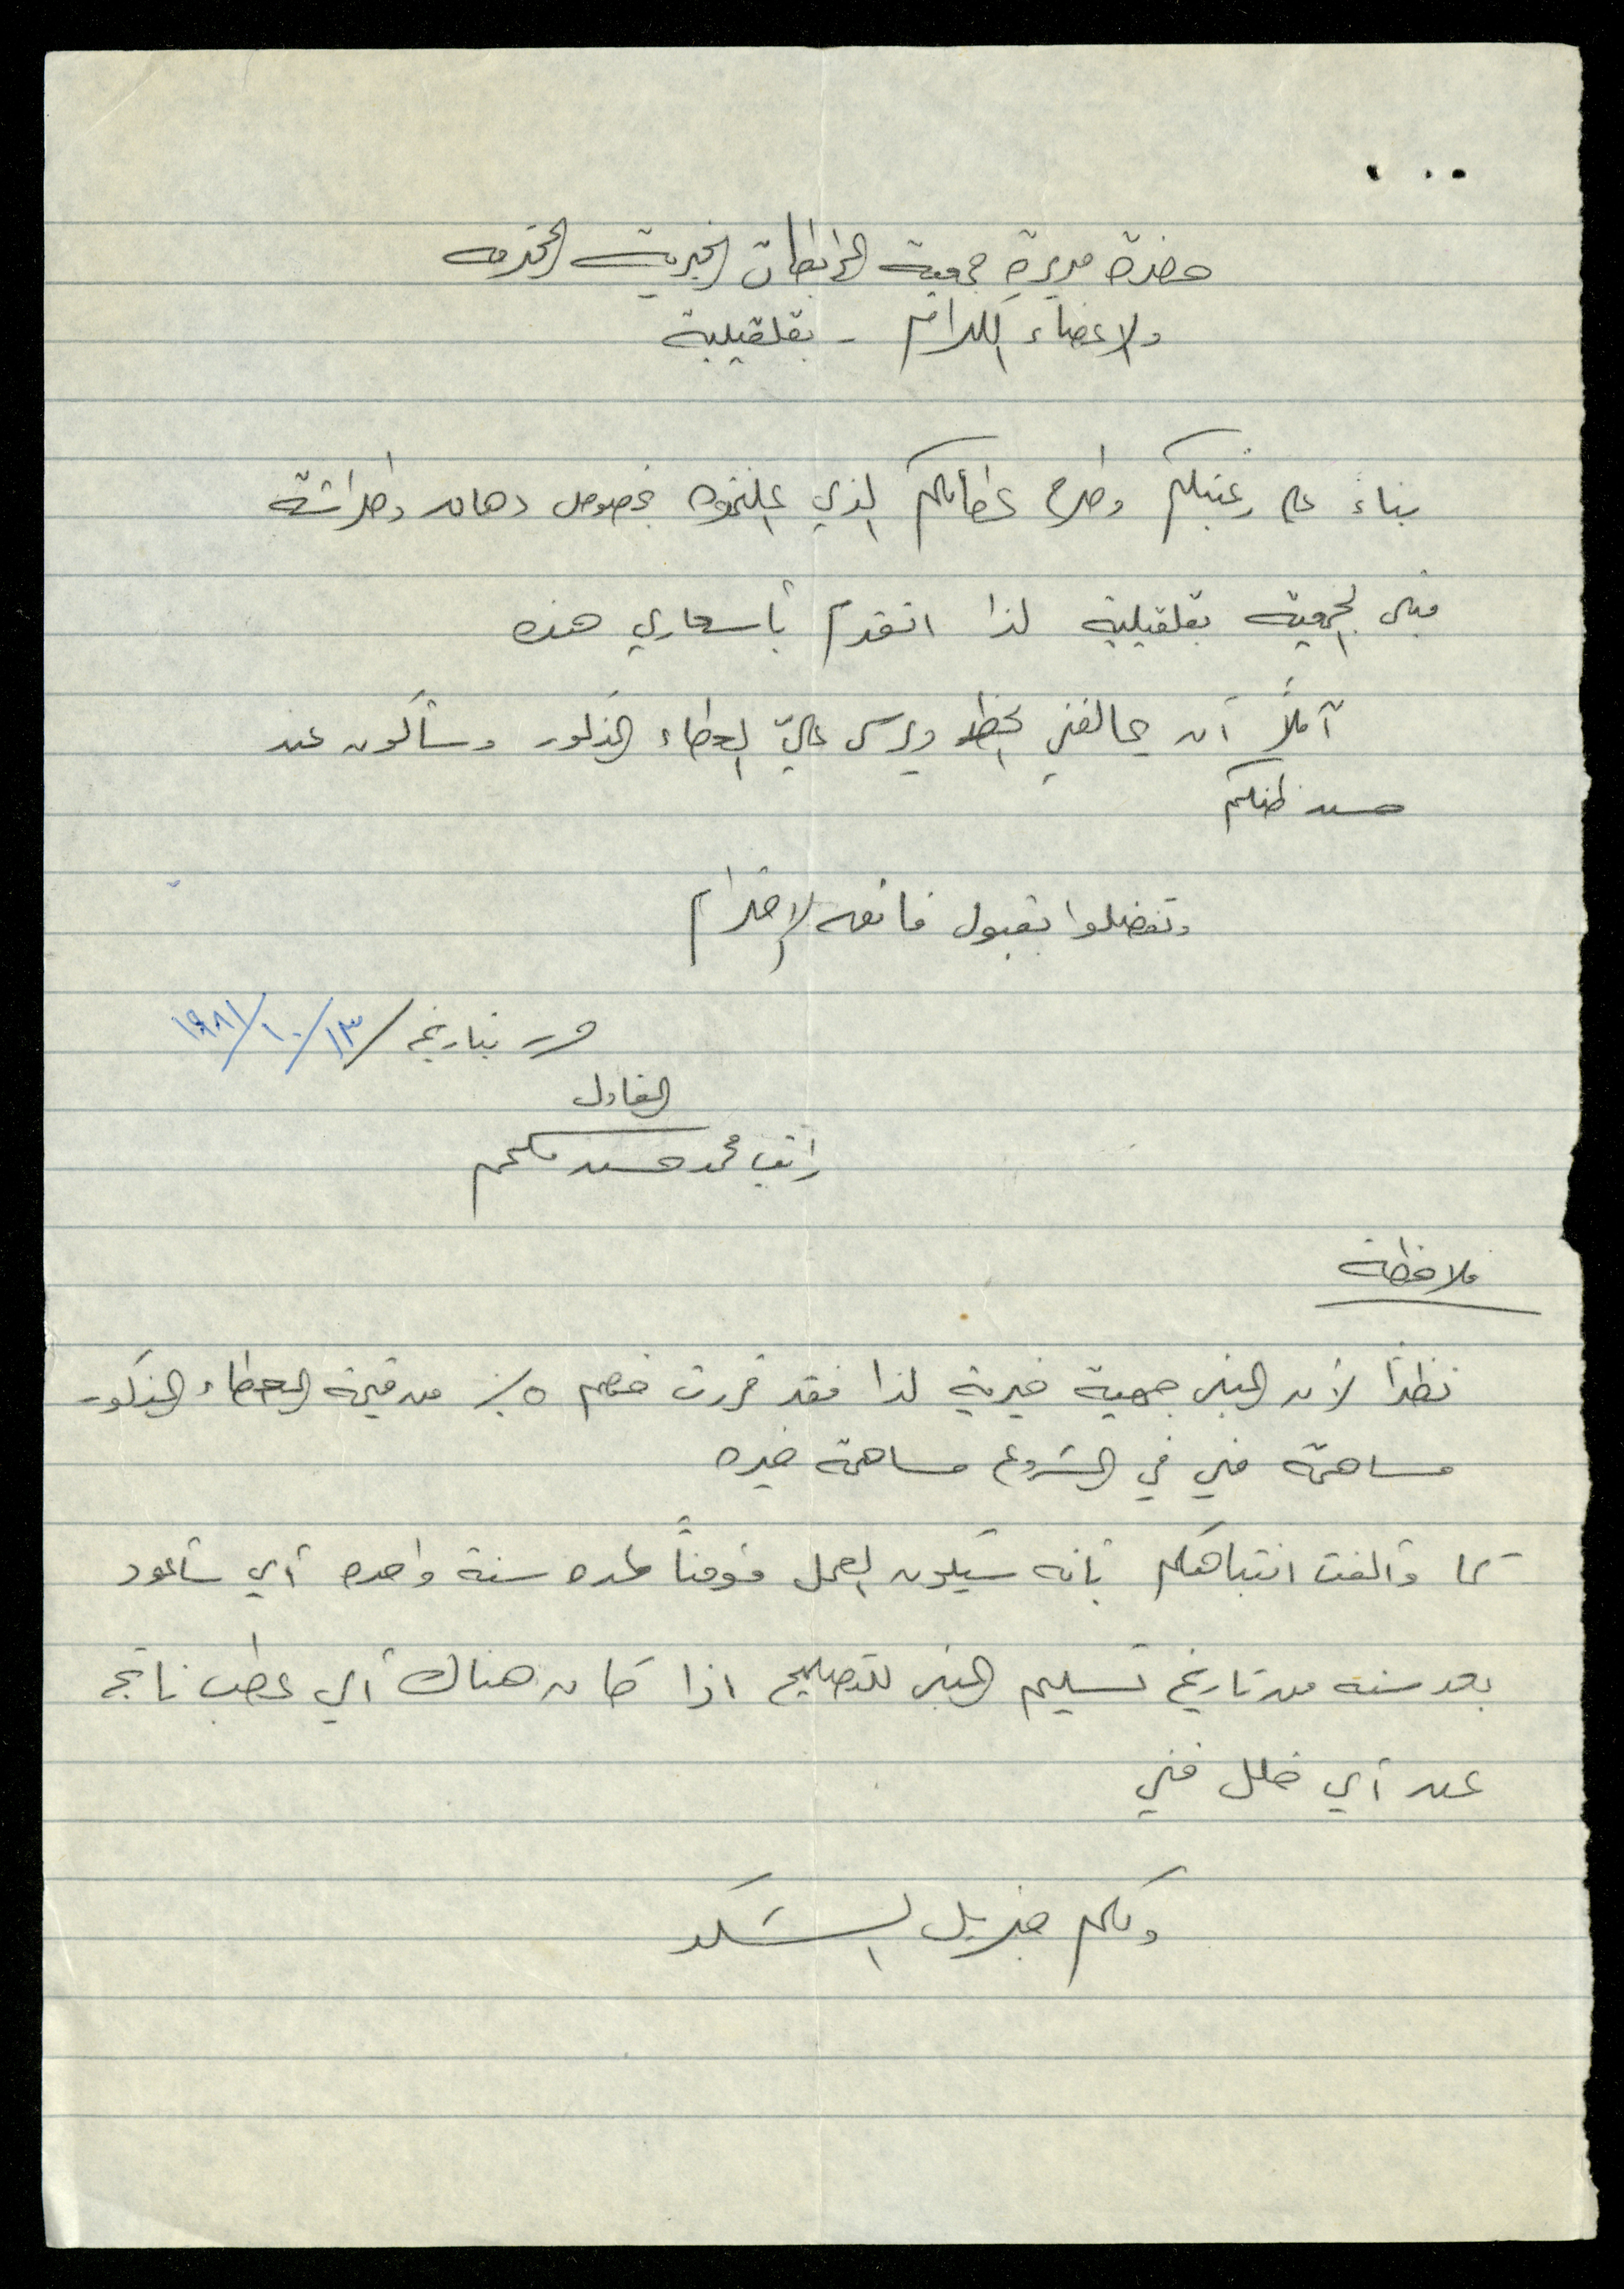 حضرة مديرة جمعية المرابطات الخيرية المحترمه
والاعضاء الكرام - بقلقيلية
بناءً على رغبتكم وطرح عطائكم الذي اعلنتموه بخصوص دهان وطراشة
مبنى الجمعية بقلقيلية لذا اتقدم بأسعاري هذه
آملاً أن يحالفني الحظ ويرسى عليّ العطاء المذكور وسأكون عند
حسن ظنكم
وتفضلوا بقبول فائق الاحترام
حرر بتاريخ / ١٣/ ١٠/ ١٩٨١
المقاول
راتب محمد حسن ملحم
ملاحظة
نظراً لأن المبنى جمعية خيرية لذا فقد قررت خصم ٥٪ من قيمة العطاء المذكور
مساهمة مني في المشروع مساهمة خيره
كما وألفت انتباهكم بأنه سيكون العمل مؤمناً لمده سنة واحده أي سأعود
بعد سنه من تاريخ تسليم المبنى للتصليح اذا كان هناك أي عطب ناتج
عن أي خلل فني
ولكم جزيل الشكر